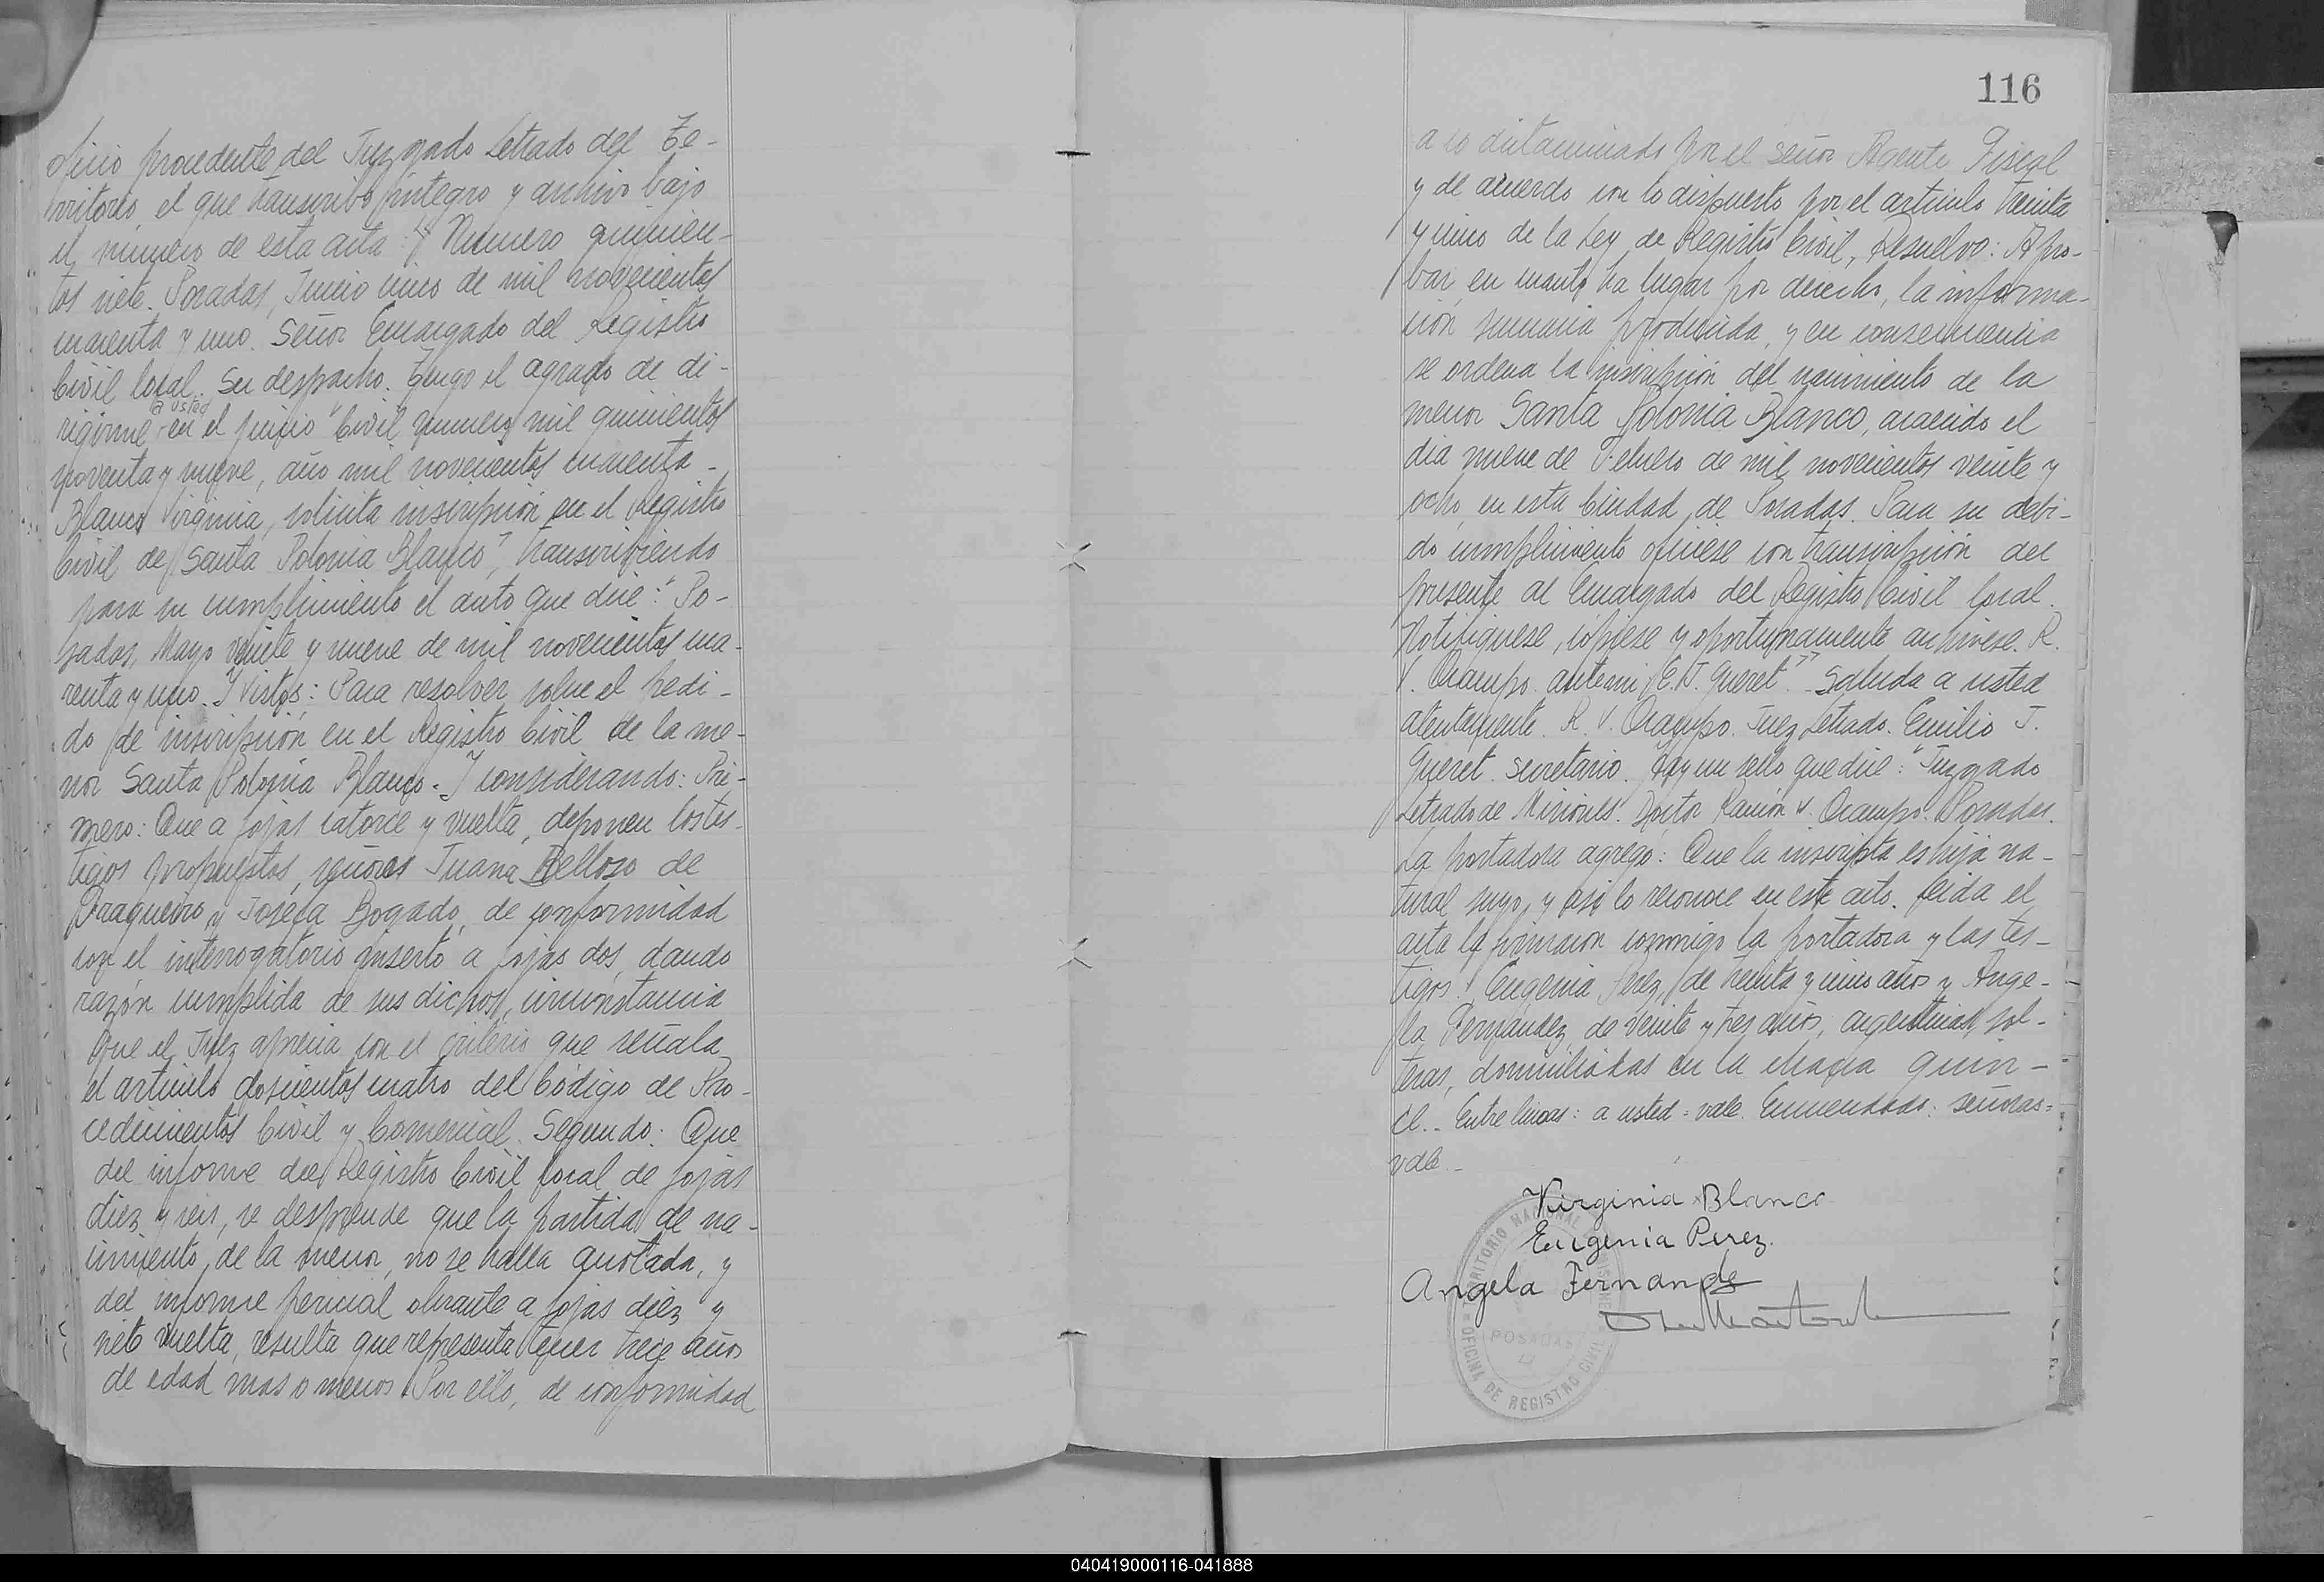 oficio procedente del Juzgado Letrado del Te-
rritorio, el que transcribo íntegro y archivo bajo
el número de esta acta: "Número quinien-
tos siete. Posadas, Junio cinco de mil novecientos
cuarenta y uno. Señor Encargado del Registro
Civil local. Su despacho. Tengo el agrado de di-
a usted
rigirme en el juicio "Civil número mil quinientos
noventa y nueve, año mil novecientos cuarenta -
Blanco Virginia, solicita inscripción en el Registro
Civil de Santa Polonia Blanco", transcribiendo
para su cumplimiento el auto que dice: "Po-
sadas, Mayo veinte y nueve de mil novecientos cua-
renta y uno. Y Vistos: Para resolver sobre el pedi-
do de inscripción en el Registro Civil de la me-
nor Santa Polonia Blanco. Y considerando: Pri-
mero: Que a fojas catorce y vuelta, deponen los tes-
tigos propuestos, señoras Juana Belloso de
y Josefa Bogado, de conformidad
con el interrogatorio inserto a fojas dos, dando
razón cumplida de sus dichos, circunstancia
que el Juez aprecia con el criterio que señala
el artículo doscientos cuatro del Código de Pro-
cedimientos Civil y Comercial. Segundo: Que
del informe del Registro Civil local de fojas
diez y seis, se desprende que la partida de na-
cimiento, de la menor, no se halla anotada, y
del informe pericial obrante a fojas diez y
siete vuelta, resulta que representa tener trece años
de edad mas o menos. Por ello, de conformidad
116
a lo dictaminado por el señor Agente Fiscal
y de acuerdo con lo dispuesto por el artículo treinta
y cinco de la Ley de Registro Civil, Resuelvo: Apro-
bar, en cuanto ha lugar por derecho, la informa-
ción sumaria producida, y en consecuencia
se ordena la inscripción del nacimiento de la
menor Santa Polonia Blanco, acaecido el
día nueve de Febrero de mil novecientos veinte y
ocho, en esta Ciudad de Posadas. Para su debi-
do cumplimiento ofíciese con transcripción del
presente al Encargado del Registro Civil local.
Notifíquese, cópiese y oportunamente archívese. R.
V. Ocampo. ante mí: E. J. Queret". Saluda a usted
atentamente. R. V. Ocampo. Juez Letrado. Emilio J.
Queret. Secretario. Hay un sello que dice: "Juzgado
Letrado de Misiones. Doctor Ramón V. Ocampo. Posadas.
La portadora agregó: Que la inscripta es hija na-
tural suya, y así lo reconoce en este acto. Leida el
acta la firmaron conmigo la portadora y las tes-
tigos: Eugenia Perez, de treinta y cinco años y Ange-
la Fernandez, de veinte y tres años, argentinas, sol-
teras, domiciliadas en la chacra quin-
ce.- Entre lineas: a usted = vale. Enmendado: señoras =
vale.-
Virginia Blanco
Eugenia Perez.
Angela Fernandz
TERRITORIO NACIONAL DE MISIONES
POSADAS
OFICINA DE REGISTRO CIVIL
040419000116-041888